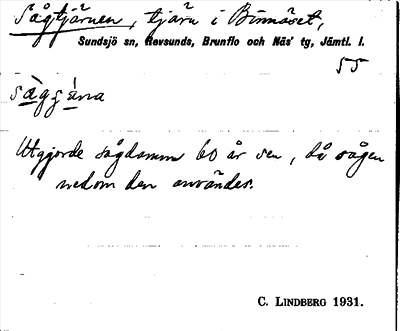 Sågtjärnen, tjärn i Binnäset,
Sundsjö sn, Revsunds, Brunflo och Näs' tg, Jämtl. l.
55
Utgjorde sågdamm 60 år sen, då sågen
nedom den användes.
C. LINDBERG 1931.